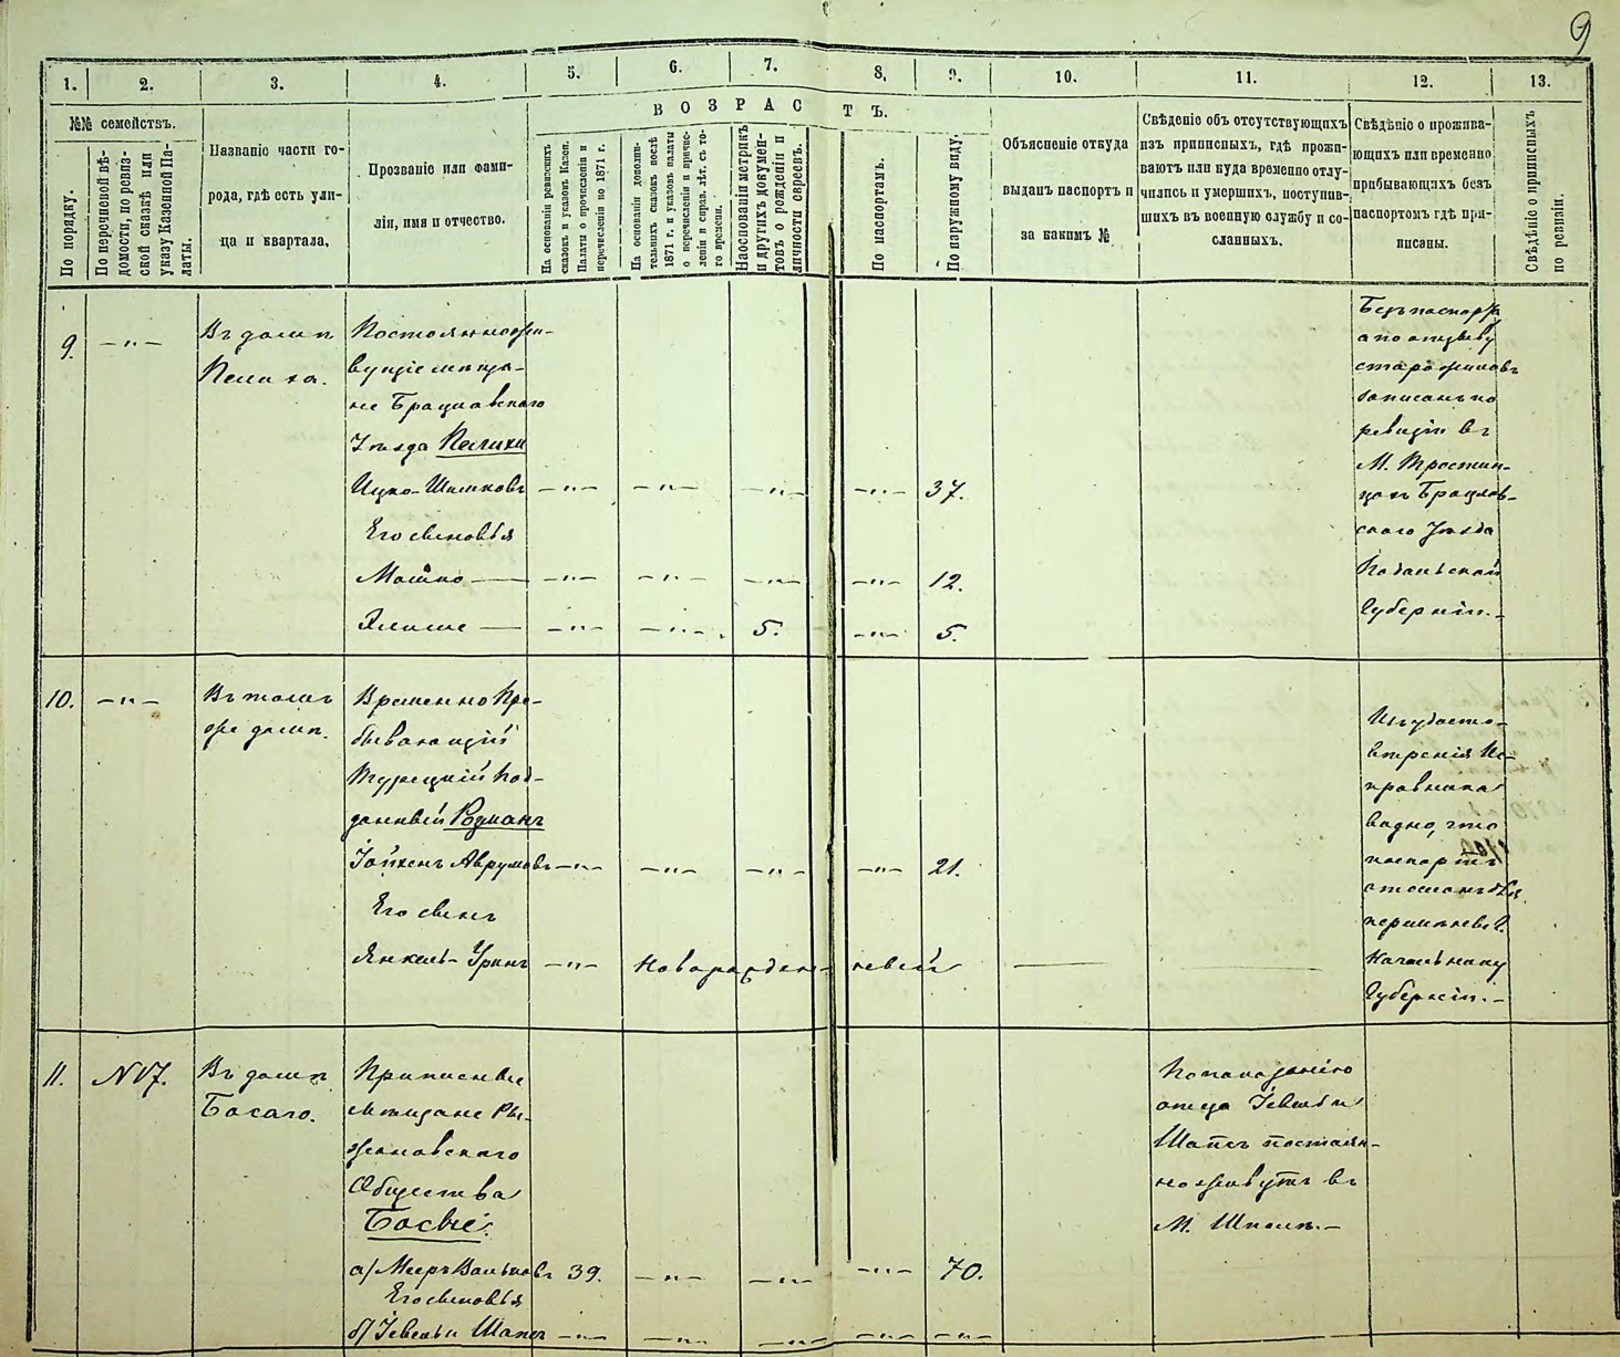 9
1. 2. 3. 4. 5. 6. 7. 8. 9. 10. 11. 12. 13.
ВОЗРАСТЪ.
№№ семействъ.
По порядку.
По перечневой вѣ-
домости, по ревиз-
ской сказкѣ или
указу Казенной Па-
латы.
Названіе части го-
рода, гдѣ есть ули-
ца и квартала.
Прозваніе или фами-
лія, имя и отчество.
На основаніи ревизскихъ
сказокъ и указовъ Казен.
Палаты о причисленіи и
перечисленіи по 1871 г.
На основаніи дополни-
тельныхъ сказокъ послѣ
1871 г. и указовъ палаты
о перечисленіи и причис-
леніи и справ. лѣт. съ то-
го времени.
На основаніи метрикъ
и другихъ докумен-
товъ о рожденіи и
личности евреевъ.
По паспортамъ.
По наружному виду.
Объясненіе откуда
выданъ паспортъ и
за какимъ №
Свѣденіе объ отсутствующихъ
изъ приписныхъ, гдѣ прожи-
ваютъ или куда временно отлу-
чились и умершихъ, поступив-
шихъ въ военную службу и со-
сланныхъ.
Свѣдѣніе о прожива-
ющихъ или временно
прибывающихъ безъ
паспортомъ гдѣ при-
писаны.
Свѣдѣніе о приписныхъ
по ревизіи.
9. —"—
Въ домѣ
Пелиха.
Постоянножи-
вущіе мѣща-
не Брацлавскаго
Уѣзда Пелихи
Ицко-Шмулковъ —"— —"— —"— —"— 37.
Его сыновья
Мошко — —"— —"— —"— —"— 12.
— —"— —"— 5. —"— 5.
Безъ паспорта
а по отзыву
старожиловъ
записанъ по
ревизіи въ
М. Тростян-
цахъ Брацлав-
скаго Уѣзда
Подольской
Губерніи.-
10. —"—
Въ томъ
же домѣ.
Временно Пре-
бывающій
Турецкій Под-
данный Розманъ
Іойхенъ Аврумовъ —"— —"— —"— —"— 21.
Его сынъ
Янкель-Уринъ —"— Новорожден-ный —
Изъ удосто-
вѣренія Ис-
правника
видно, что
паспортъ
отосланъ для
перемѣны Г.
Начальнику
Губерніи.-
11. N 17.
Въ домѣ
Босаго.
Приписные
мѣщане Ры-
жановскаго
Общества
Босые:
а/ Мееръ Вольковъ 39. —"— —"— —"— 70.
Его сыновья
б/ Іевель и Шапсъ —"— —"— —"— —"— —"—
По показанію
отца Іевель и
Шапсъ постоян-
но живутъ въ
М. Шполѣ.-